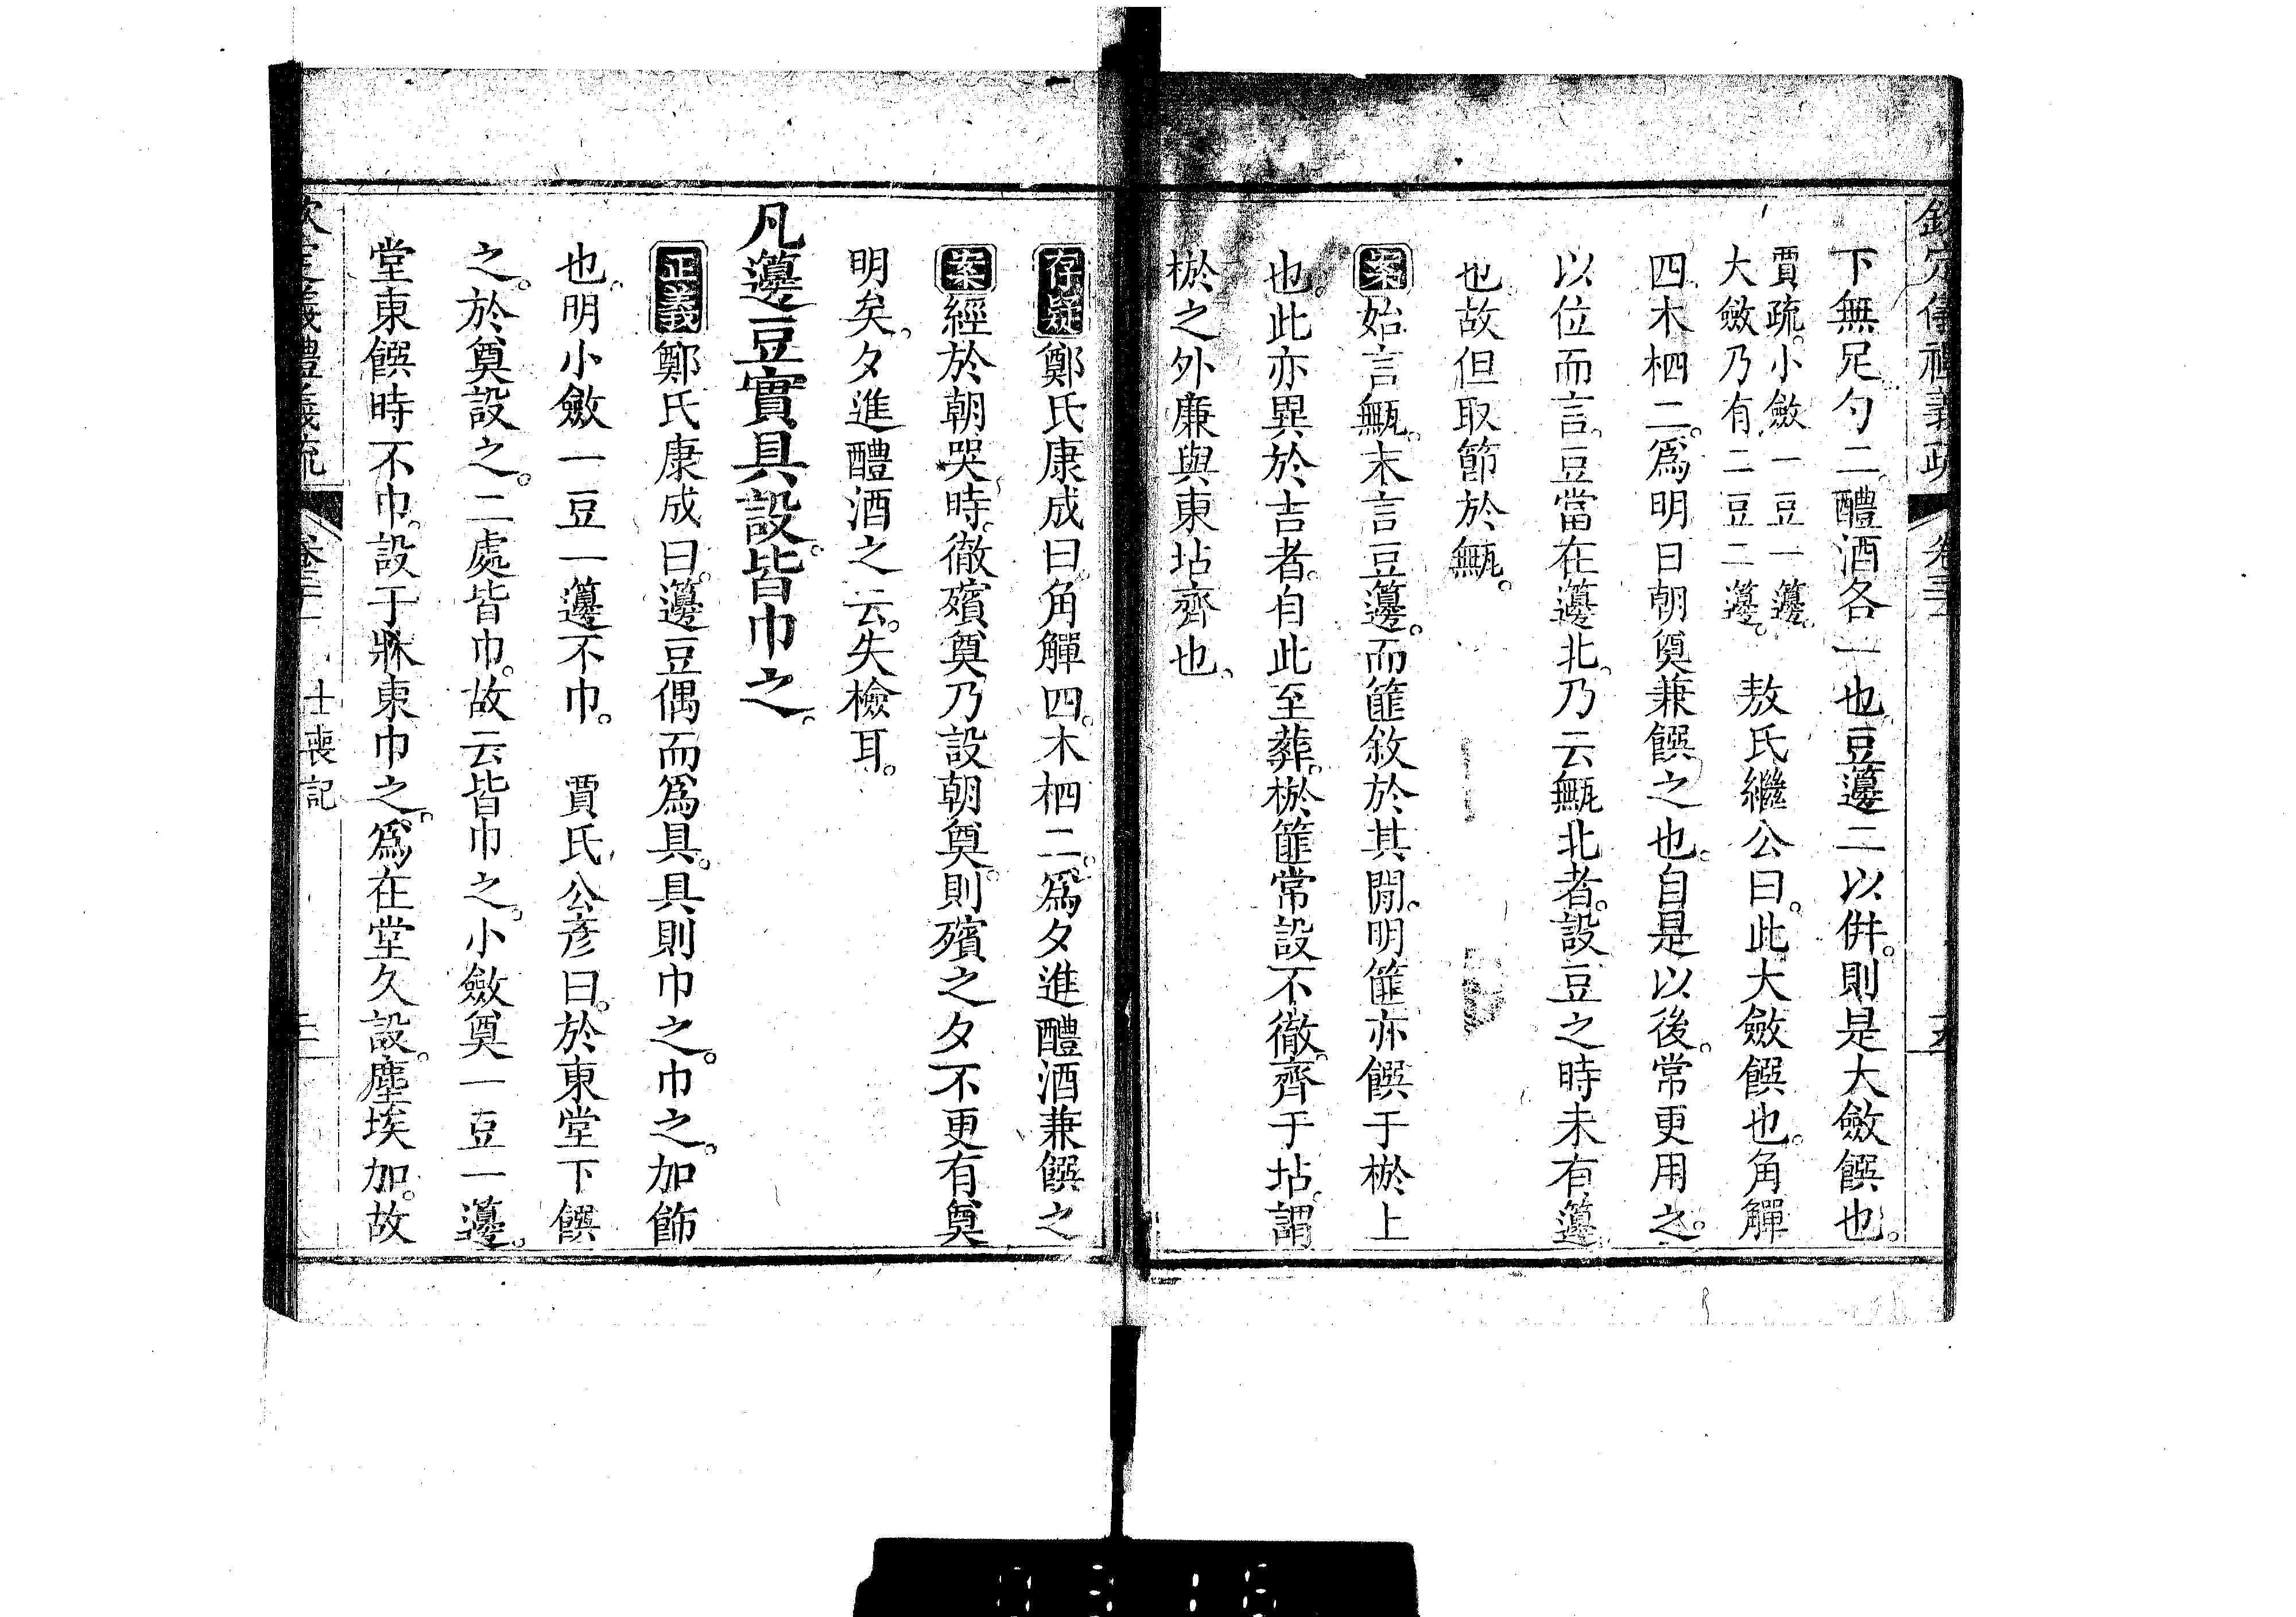 欽定儀禮義疏 卷三十一
下無足勺二醴酒各一也豆籩二以併。則是大斂饌也。
賈疏。小斂一豆一籩。
大斂乃有二豆二籩。
敖氏繼公曰。此大斂饌也。角觶
四木柶二。爲明日朝奠兼饌之也。自是以後。常更用之。
以位而言。豆當在籩北。乃云甒北者。設豆之時未有籩
也故但取節於甒。
案始言甒。末言豆籩。而篚敘於其閒。明篚亦饌于棜上
也。此亦異於吉者。自此至葬。棜篚常設不徹。齊于坫。謂
棜之外廉與東坫齊也。
存疑鄭氏康成曰。角觶四。木柶二。爲夕進醴酒兼饌之
案經於朝哭時。徹殯奠乃設朝奠。則殯之夕不更有奠
明矣。夕進醴酒之云。失檢耳。
凡籩豆實具設。皆巾之。
正義鄭氏康成曰。籩豆偶而爲具。具則巾之。巾之。加飾
也。明小斂一豆一籩不巾。 賈氏公彥曰。於東堂下饌
之。於奠設之。二處皆巾。故云皆巾之。小斂奠一豆一籩。
堂東饌時不巾。設于牀東巾之。爲在堂久設。塵埃加。故
欽定儀禮義疏 士喪記